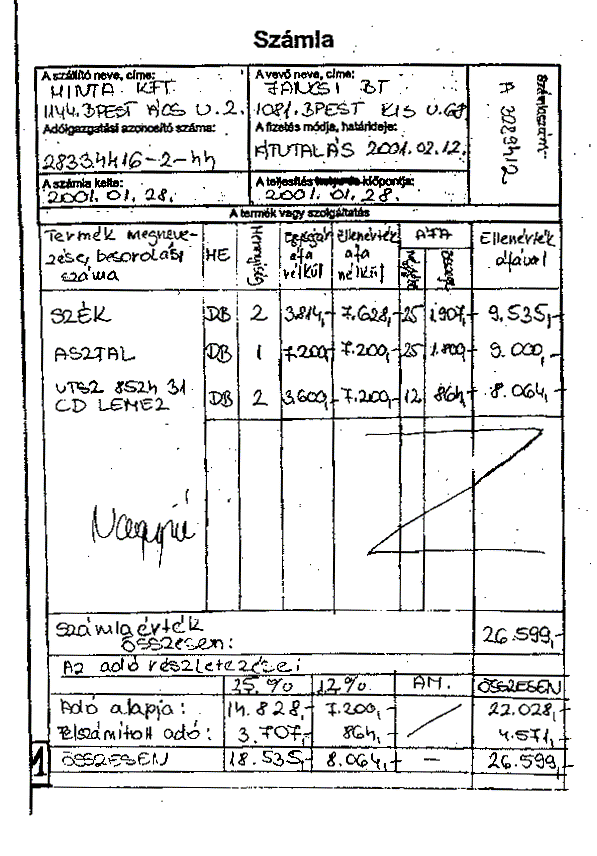 Számla
A szállító neve, címe:
MINTA KFT
1144. BPEST ÁCS U. 2.
Adóigazgatási azonosító száma:
28334416-2-44
A számla kelte:
2001. 01. 28.
A vevő neve, címe:
JANCSI BT
1081. BPEST KIS U. 68
A fizetés módja, határideje:
ÁTUTALÁS 2001.02.12.
A teljesítés időpontja:
2001. 01. 28.
Számlaszám:
A 3283412
A termék vagy szolgáltatás
Termék megneve-
zése, besorolási
száma
HE
Mennyiség
Egységár
áfa
nélkül
Ellenérték
áfa
nélkül
ÁFA
Ellenérték
áfával
SZÉK DB 2 3.814,- 7.628,- 25 1.907,- 9.535,-
ASZTAL DB 1 7.200,- 7.200,- 25 1.800,- 9.000,-
VTSZ 8524 31
CD LEMEZ DB 2 3.600,- 7.200,- 12 864,- 8.064,-
Számla érték
összesen: 26.599,-
Az adó részletezései
25 % 12 % AM. ÖSSZESEN
Adó alapja: 14.828,- 7.200,- 22.028,-
Felszámított adó: 3.707,- 864,- 4.571,-
ÖSSZESEN 18.535,- 8.064,- — 26.599,-
1